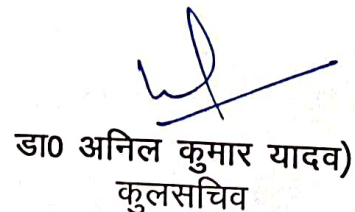 डा0 अनिल कुमार यादव)
कुलसचिव